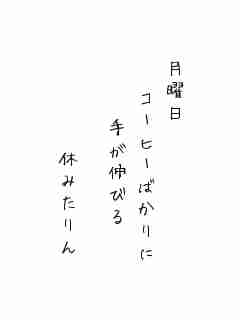 月曜日
コーヒーばかりに
手が伸びる
休みたりん